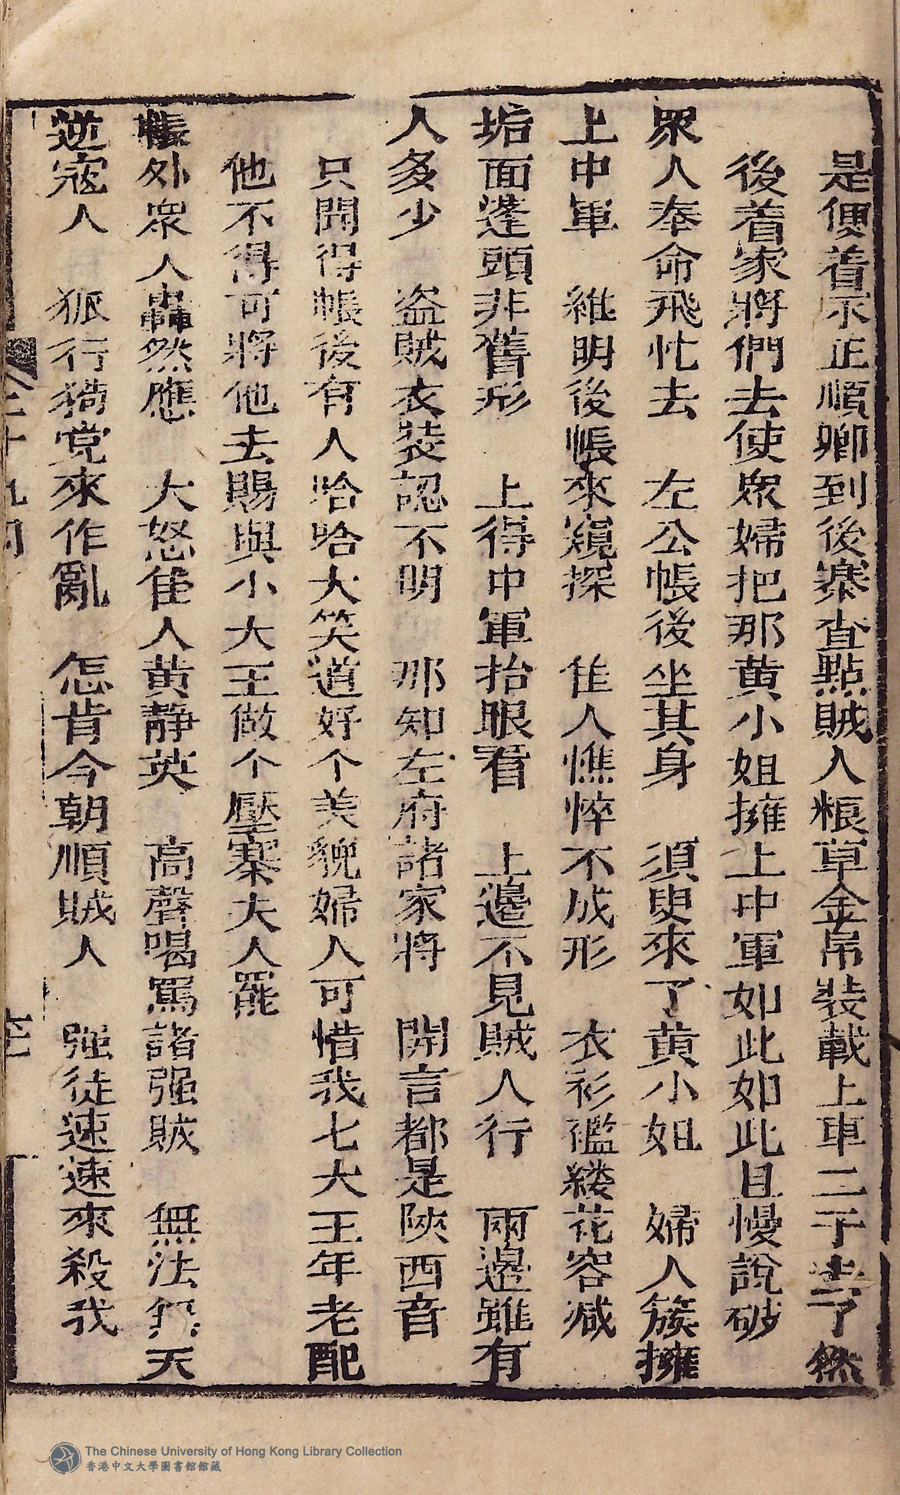 是便着示正順卿到後寨查點賊人粮草金帛裝載上車二子去了然
後着家將們去使眾婦把那黃小姐擁上中軍如此如此且慢說破
眾人奉命飛忙去　左公帳後坐其身　須臾來了黃小姐　婦人簇擁
上中軍　維明後帳來窺探　佳人憔悴不成形　衣衫襤褸花容减
垢面蓬頭非舊形　上得中軍抬眼看　上邊不見賊人行　兩邊雖有
人多少　盗賊衣裝認不明　那知左府諸家將　開言都是陝西音
只聞得帳後有人哈哈大笑道好个美貌婦人可惜我七大王年老配
他不得可將他去賜與小大王做个壓寨夫人罷
帳外眾人轟然應　大怒佳人黃静英　高聲喝罵諸强賊　無法無天
逆寇人　狐行猗党來作亂　怎肯今朝順賊人　强徒速速來殺我
The Chinese University of Hong Kong Library Collection
香港中文大學圖書館館藏